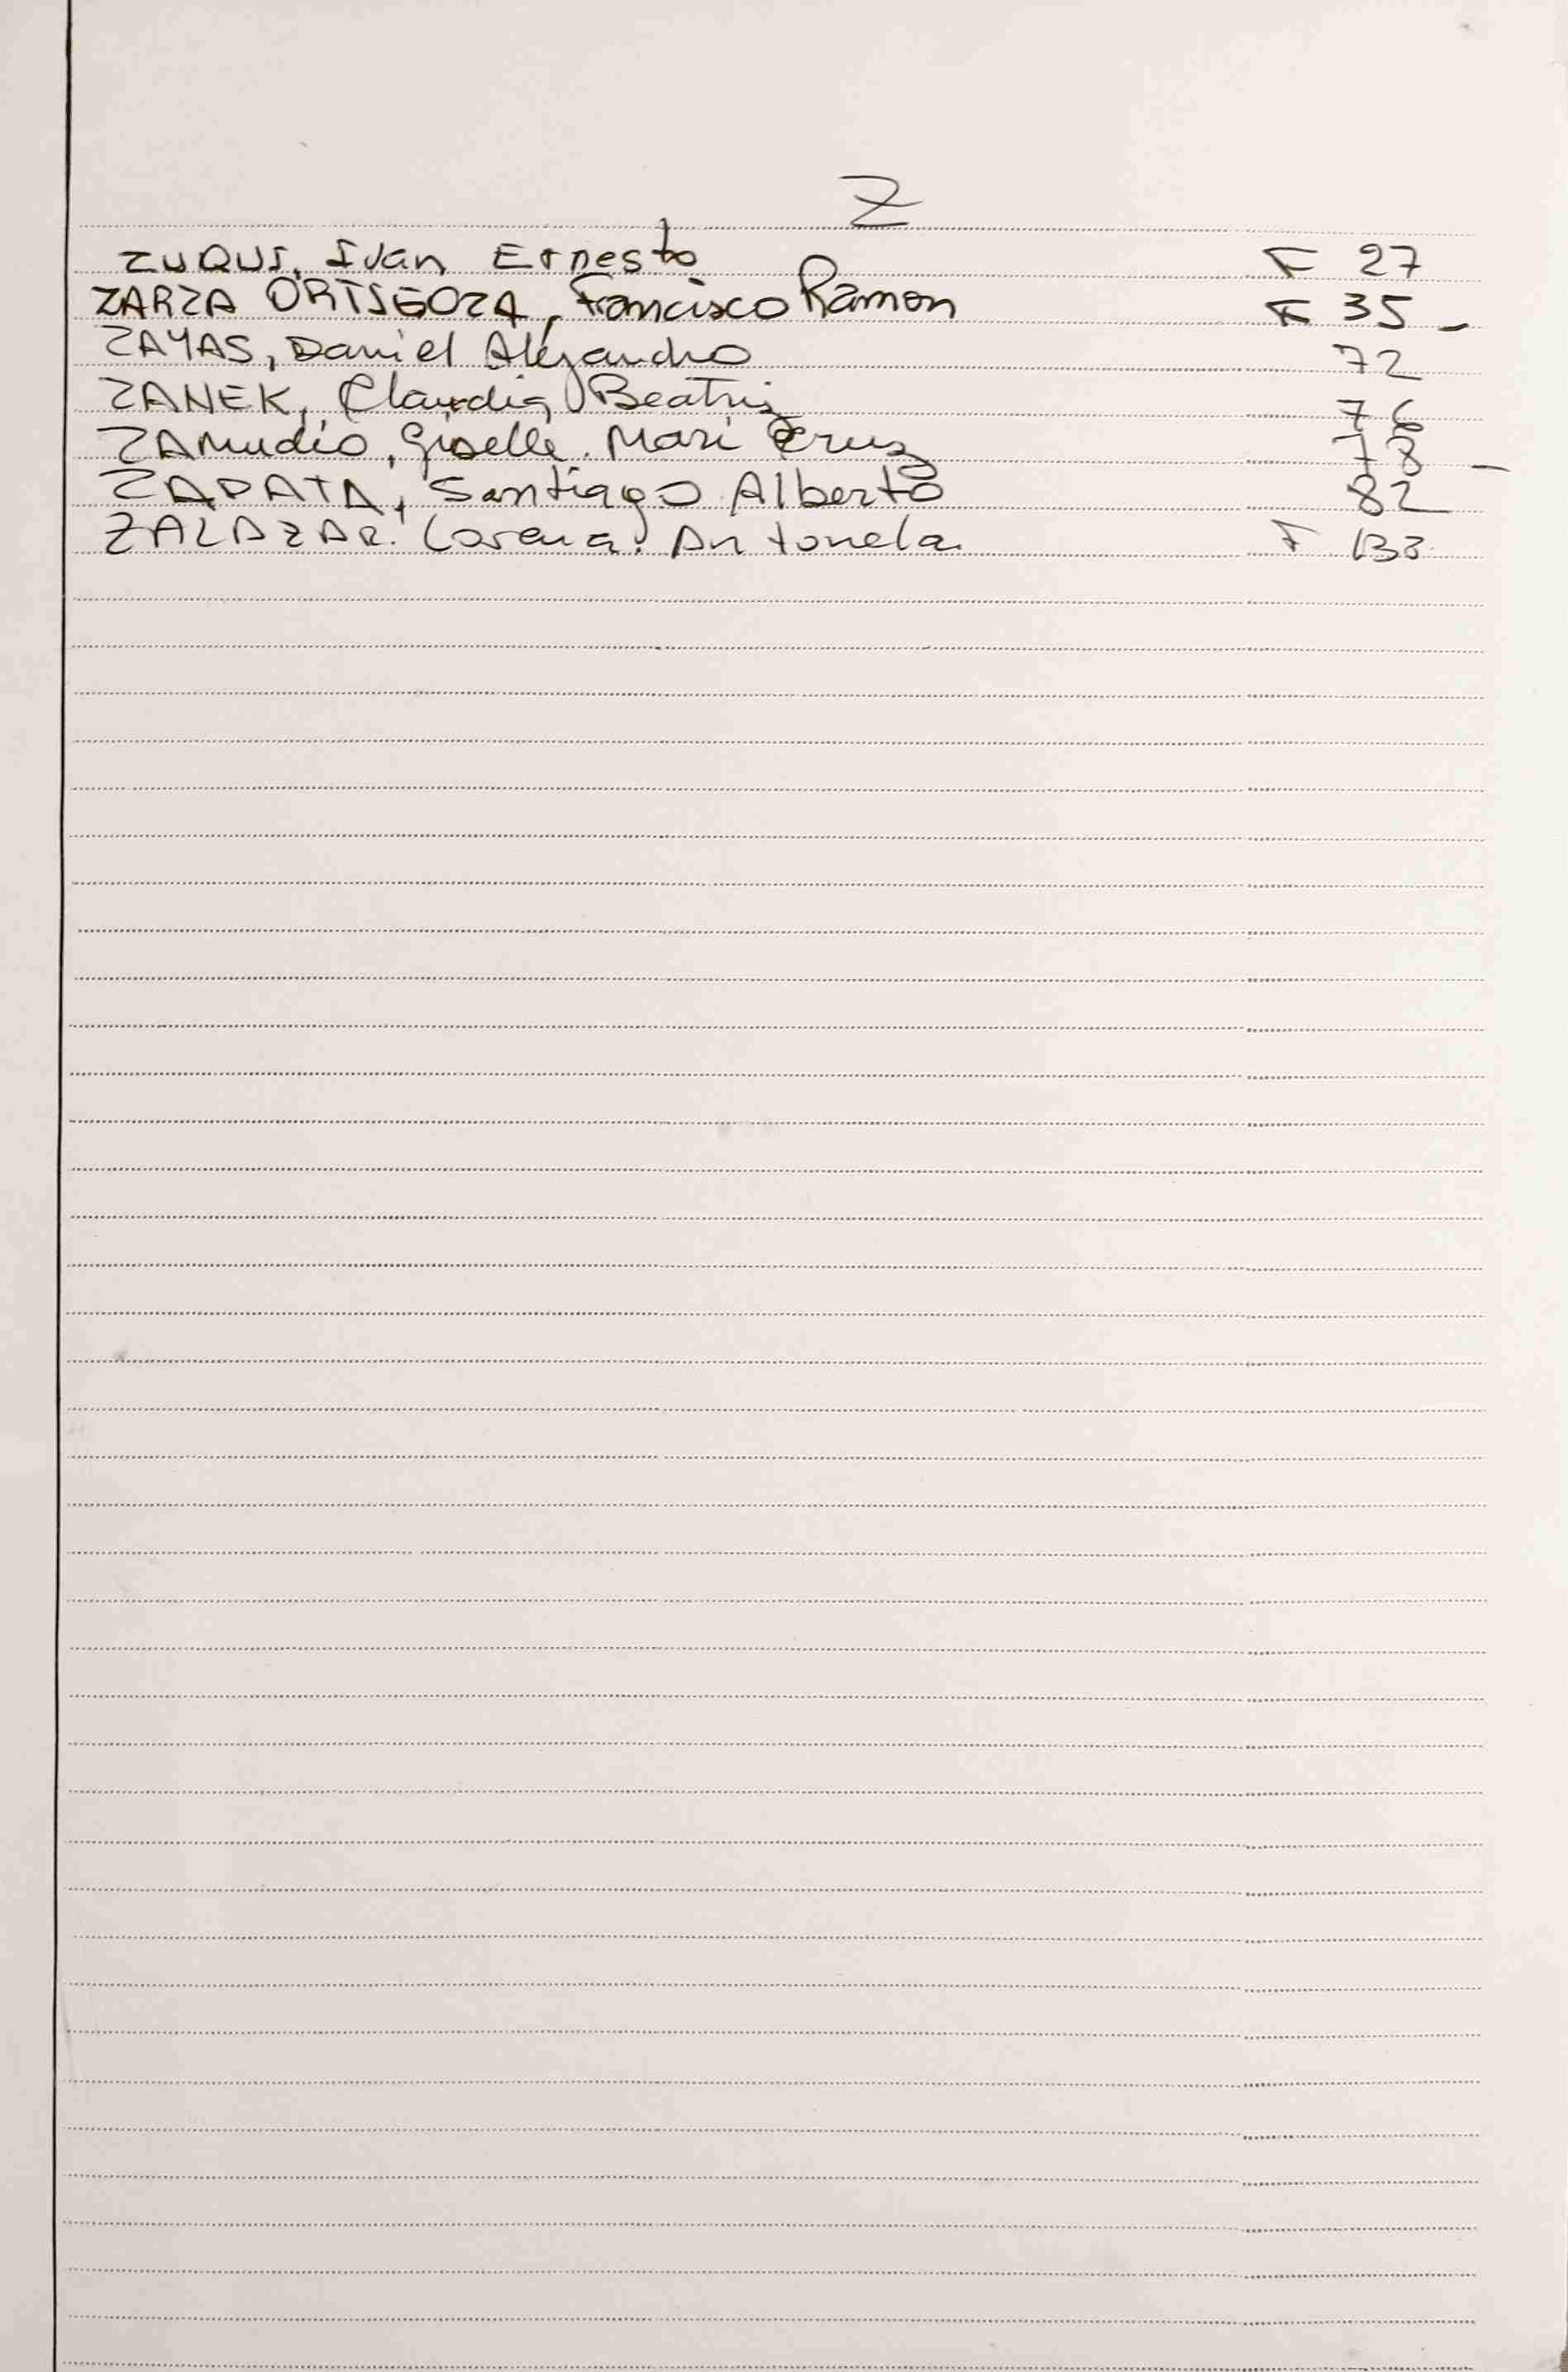 Z
ZUQUI, Ivan Ernesto F 27
ZARZA ORTIGOZA, Francisco Ramon F 35 -
ZAYAS, Daniel Alejandro 72
ZANEK, Claudia Beatriz 76
ZAMudio, Giselle Mari Cruz 78 -
ZAPATA, Santiago Alberto 82
ZALAZAR. Lorena. Antonela. F 133